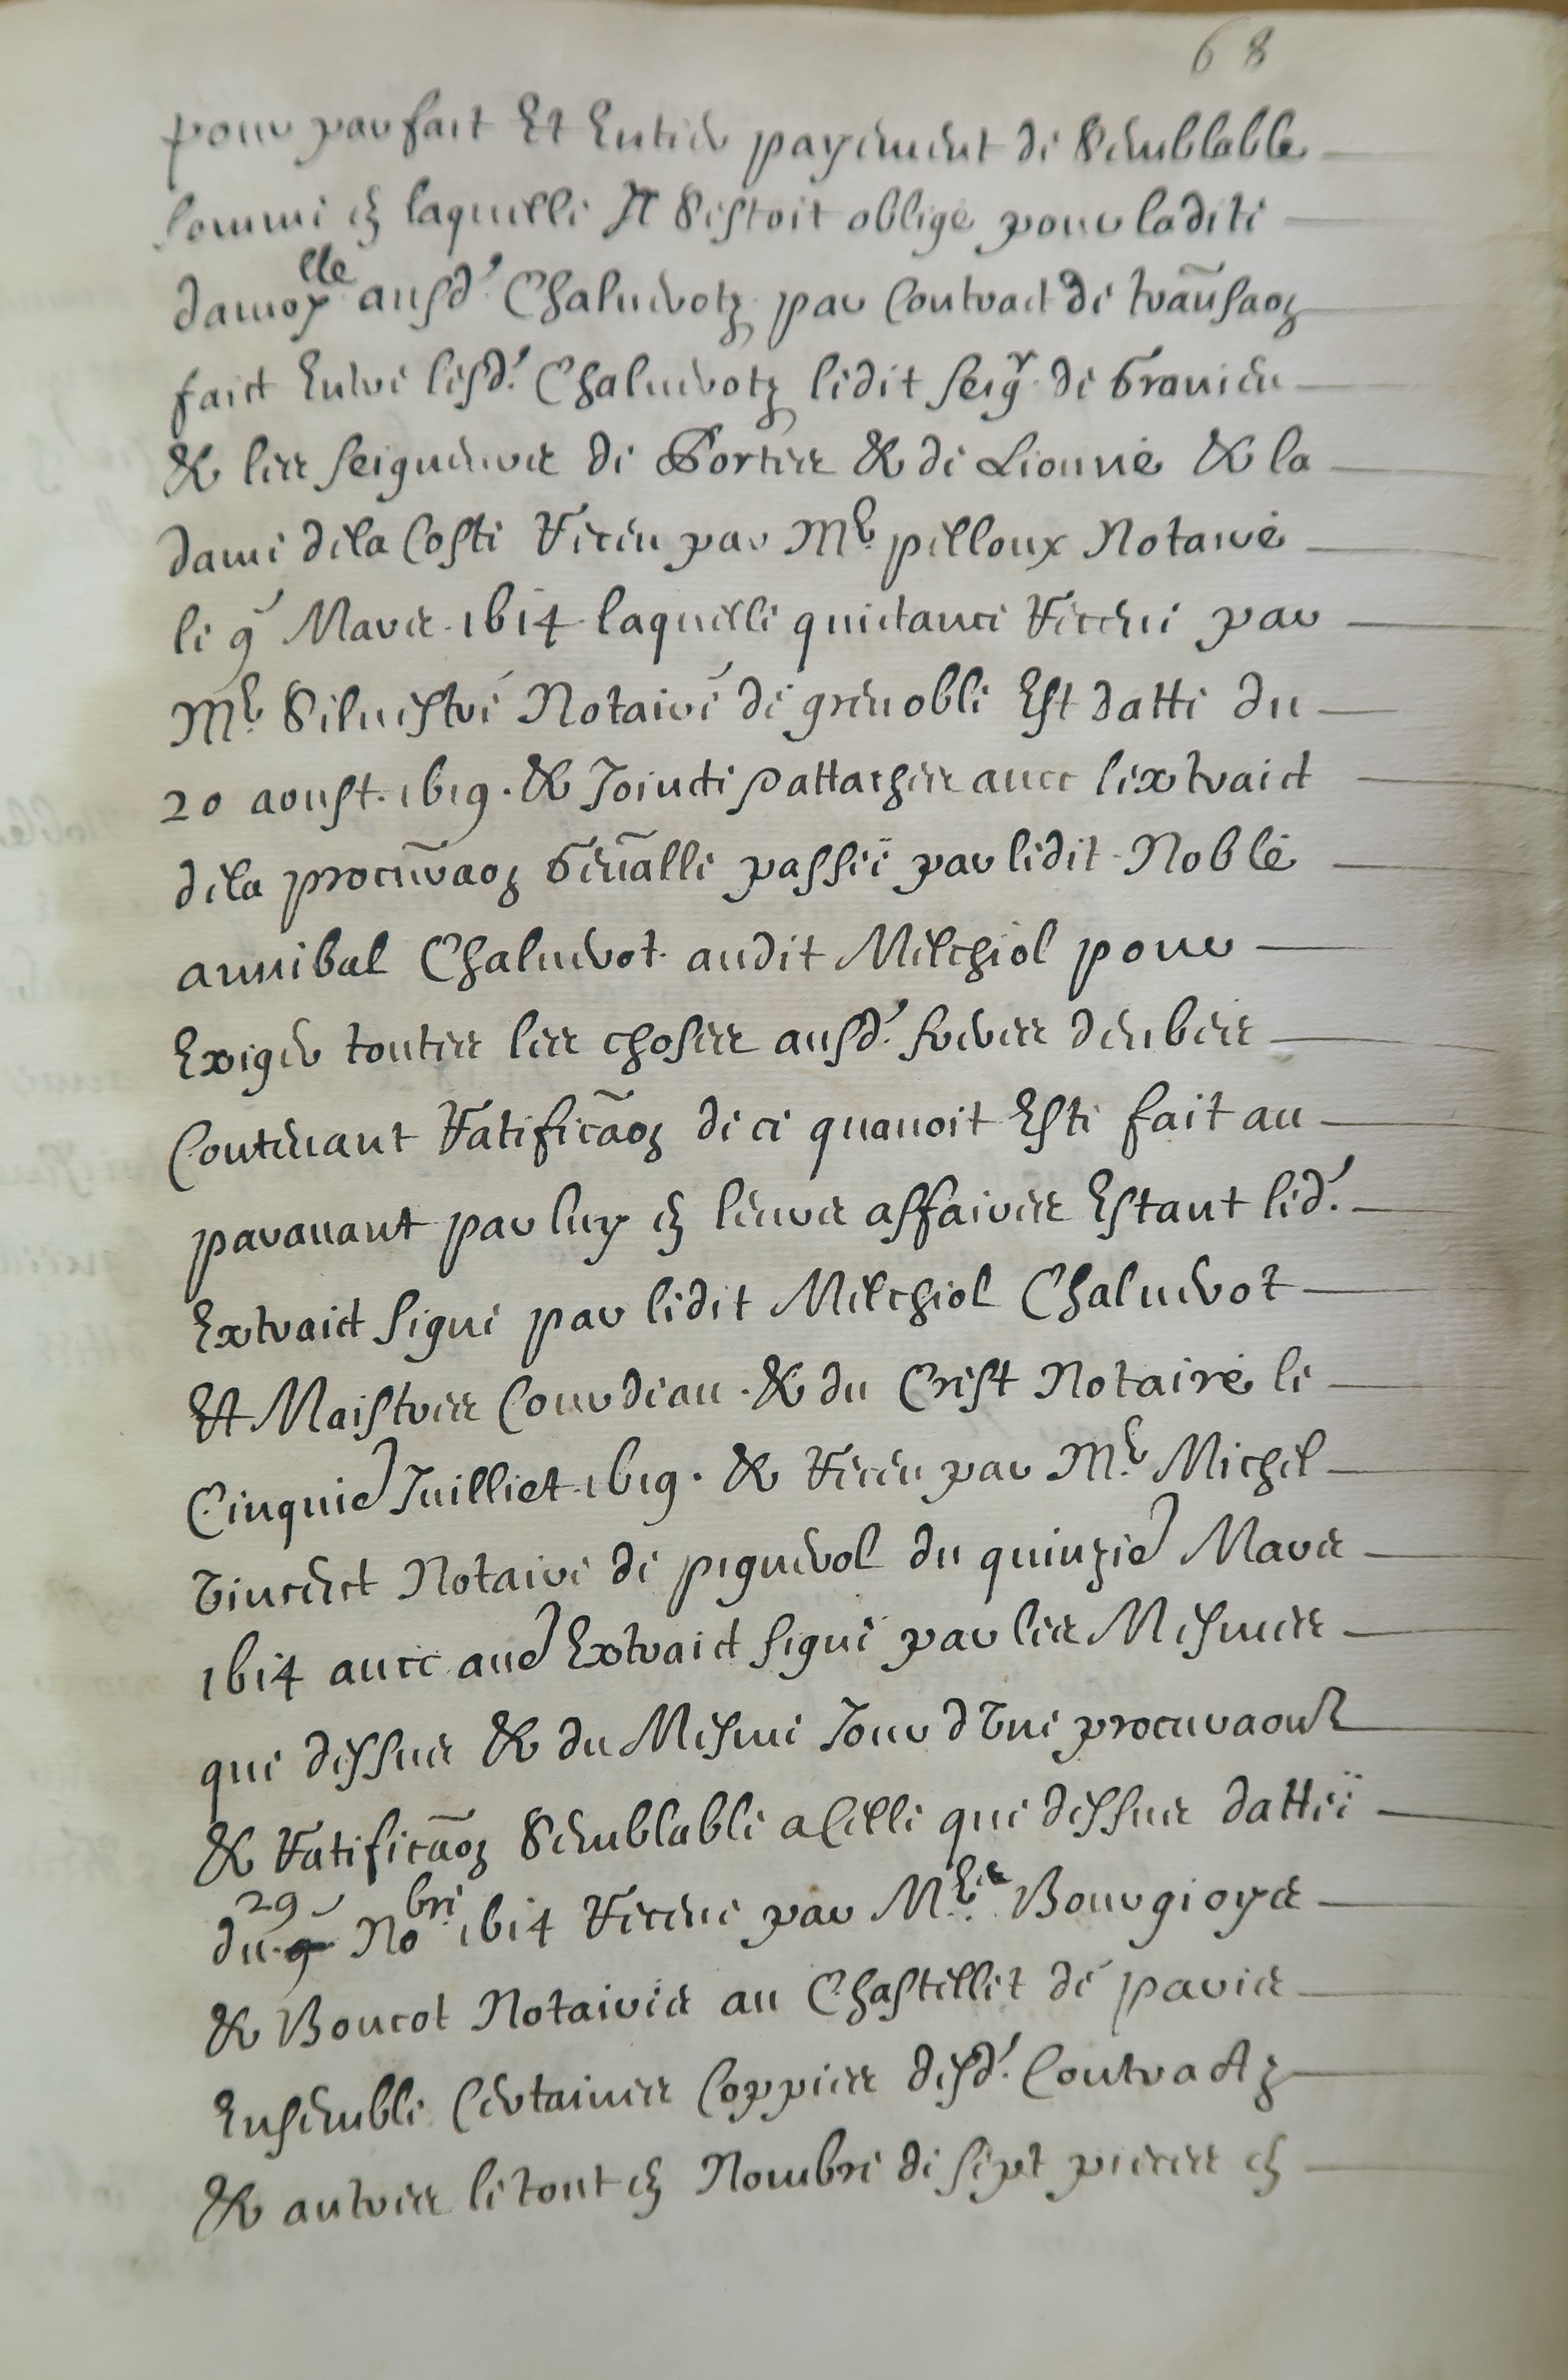 68
pour parfait Et Entier payement de Semblable
somme en laquelle Il Sestoit obligé pour ladite
damoy.lle ausd' Chaluerotz par Contract de transaon
faict Entre lesd' Chaluerotz ledit seigr de Grauieu
& les seigneurs de Portes & de Lionne & la
dame dela Coste Receu par Mr pelloux Notaire
le 9' Mars 1614 laquelle quictance Receue par
Mr Siluestre Notaire de grenoble Est datte du
20 aoust. 1619. & Joincte & attachee auec lextraict
dela procuraon Generalle passeë par ledit Noble
annibal Chaluerot audit Melchiol pour
Exiger toutes les choses ausd' freres deubes
Contenant Ratificaon de ce quauoit Esté fait au
parauant par luy en leurs affaires Estant led'.
Extraict signé par ledit Melchiol Chaluerot
Et Maistres Courdeau & du Crest Notaire le
Cinquie Juilliet 1619. & Receu par Mr Michel
Vincent Notaire de pignerol du quinzie Mars
1614 auec aue Extraict signé par les Mesmes
que dessus & du Mesme Jour d Vne procuraon
& Ratificaon Semblable a Celle que dessus datteë
du 29 Nobre 1614 Receue par Mres Bourgioys
& Boucot Notaires au Chastellet de paris
Ensemble Certaines Coppies desd' Contractz
& autres le tout en Nombre de sept pieces en